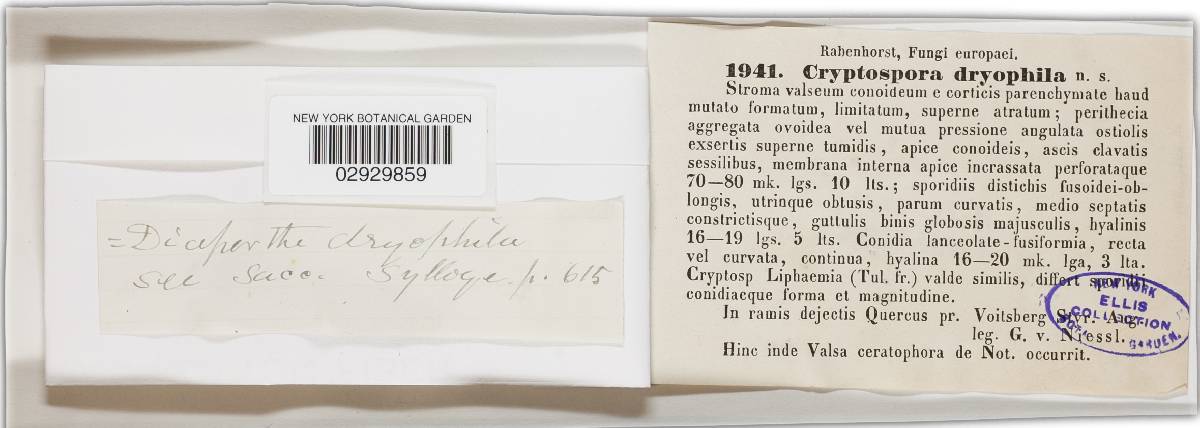 NEW YORK BOTANICAL GARDEN
02929859
= Diaporthe dryophila
see Sacc. Sylloge p. 615
Rabenhorst, Fungi europaei.
1941. Cryptospora dryophila n. s.
Stroma valseum conoideum e corticis parenchymate haud
mutato formatum, limitatum, superne atratum; perithecia
aggregata ovoidea vel mutua pressione angulata ostiolis
exsertis superne tumidis, apice conoideis, ascis clavatis
sessilibus, membrana interna apice incrassata perforataque
70—80 mk. lgs. 10 lts.; sporidiis distichis fusoidei-ob-
longis, utrinque obtusis, parum curvatis, medio septatis
constrictisque, guttulis binis globosis majusculis, hyalinis
16—19 lgs. 5 lts. Conidia lanceolate-fusiformia, recta
vel curvata, continua, hyalina 16—20 mk. lga, 3 lta.
Cryptosp Liphaemia (Tul. fr.) valde similis, differt sporidii
conidiacque forma et magnitudine.
In ramis dejectis Quercus pr. Voitsberg Styr. Aug.
leg. G. v. Niessl.
Hinc inde Valsa ceratophora de Not. occurrit.
NEW YORK
ELLIS
COLLECTION
BOT. GARDEN.